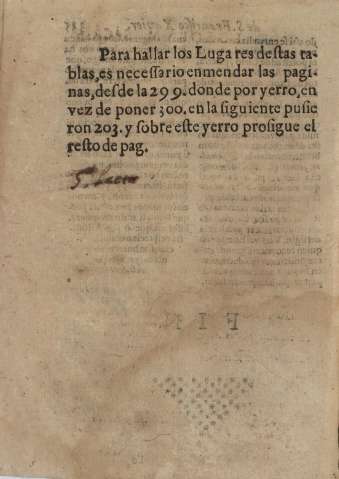 Para hallar los Luga res destas ta-
blas, es necessario enmendar las pagi-
nas, desde la 299. donde por yerro, en
vez de poner 300. en la siguiente pusie
ron 203. y sobre este yerro prosigue el
resto de pag.